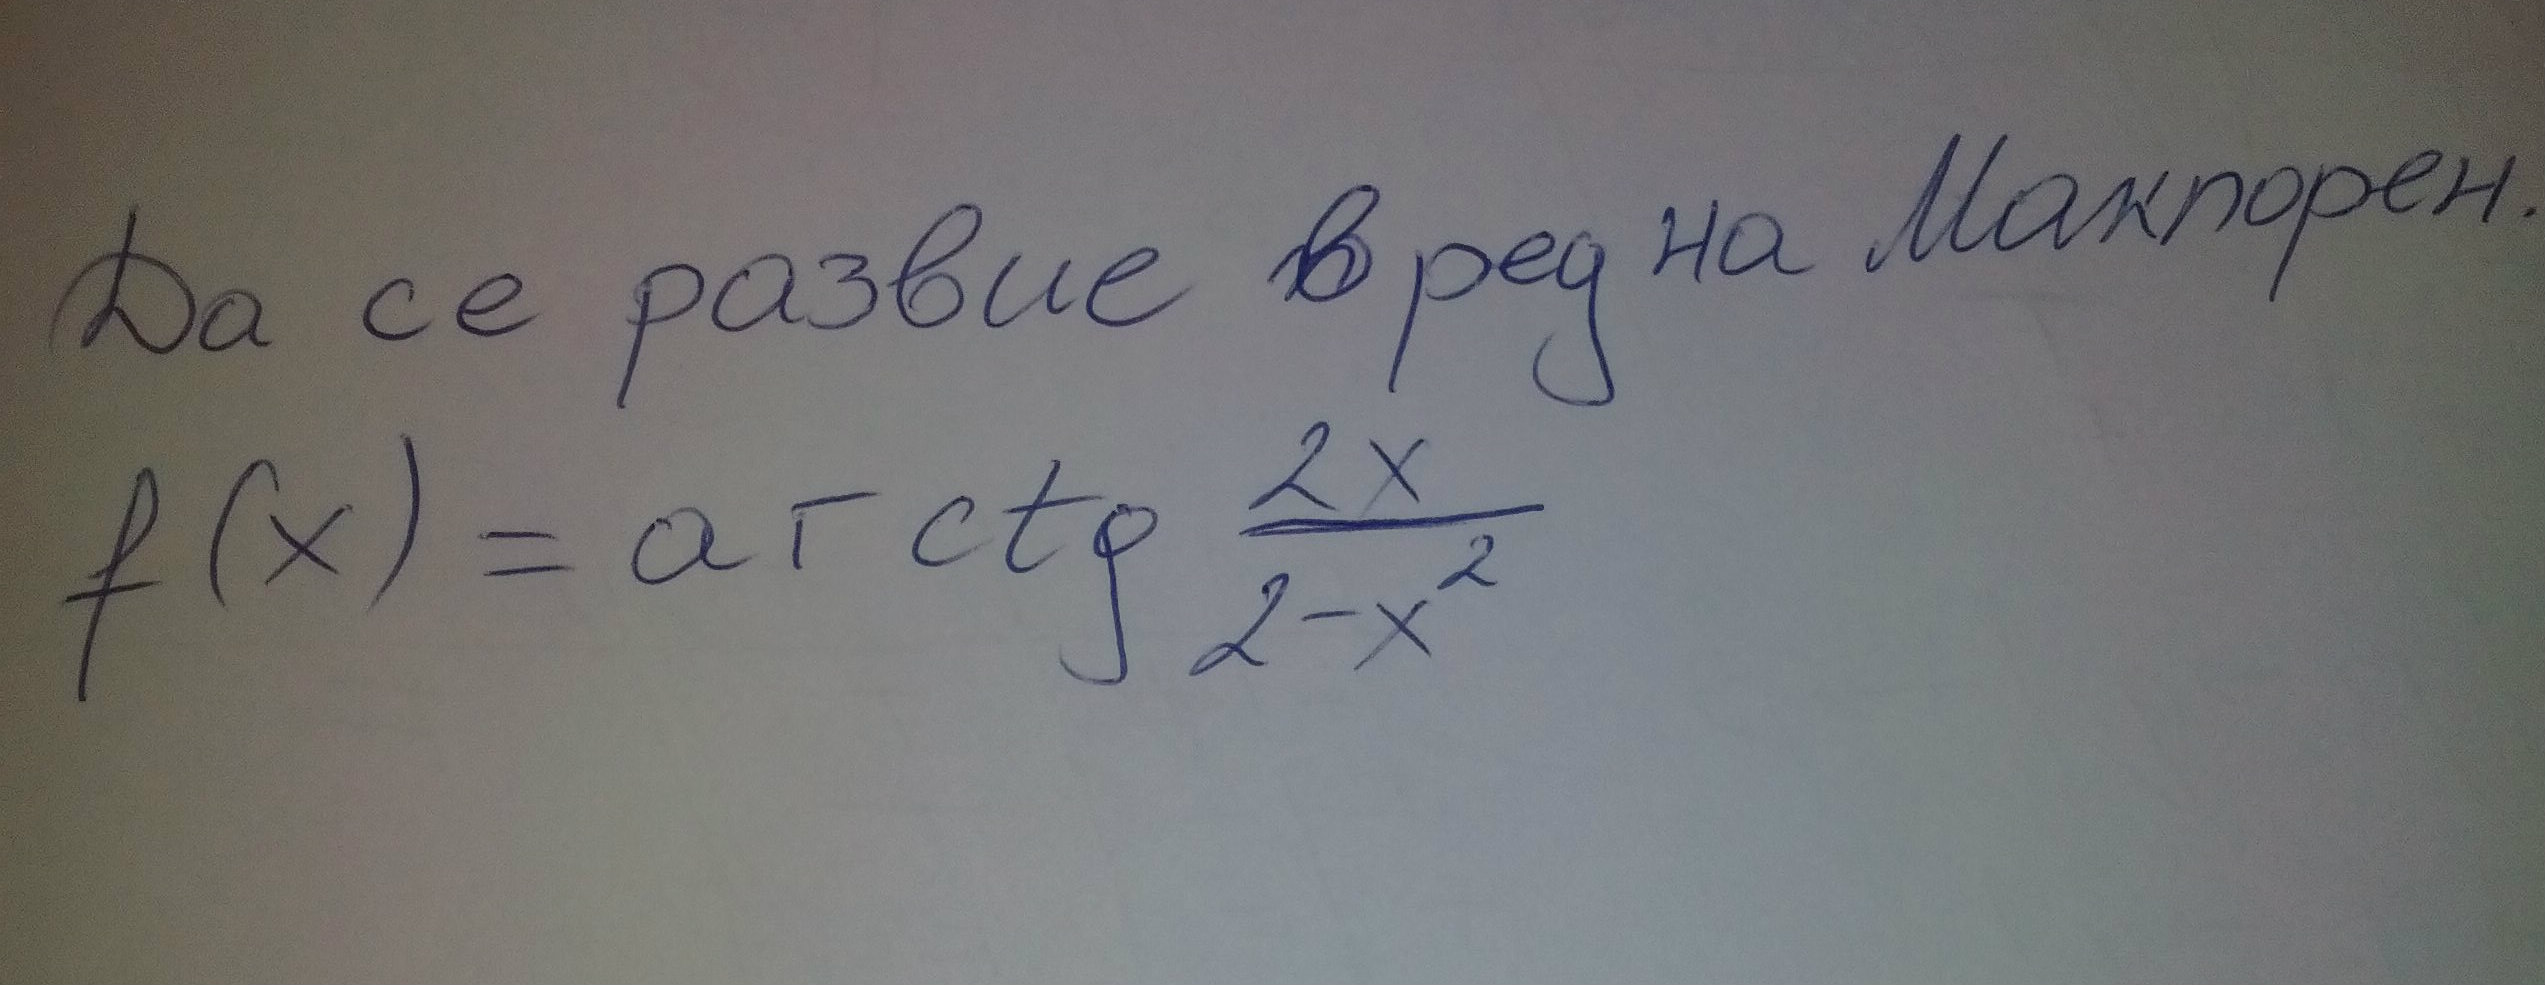 Да се развие в ред на Маклорен.
f(x) = arctg \frac{2x}{2-x^2}